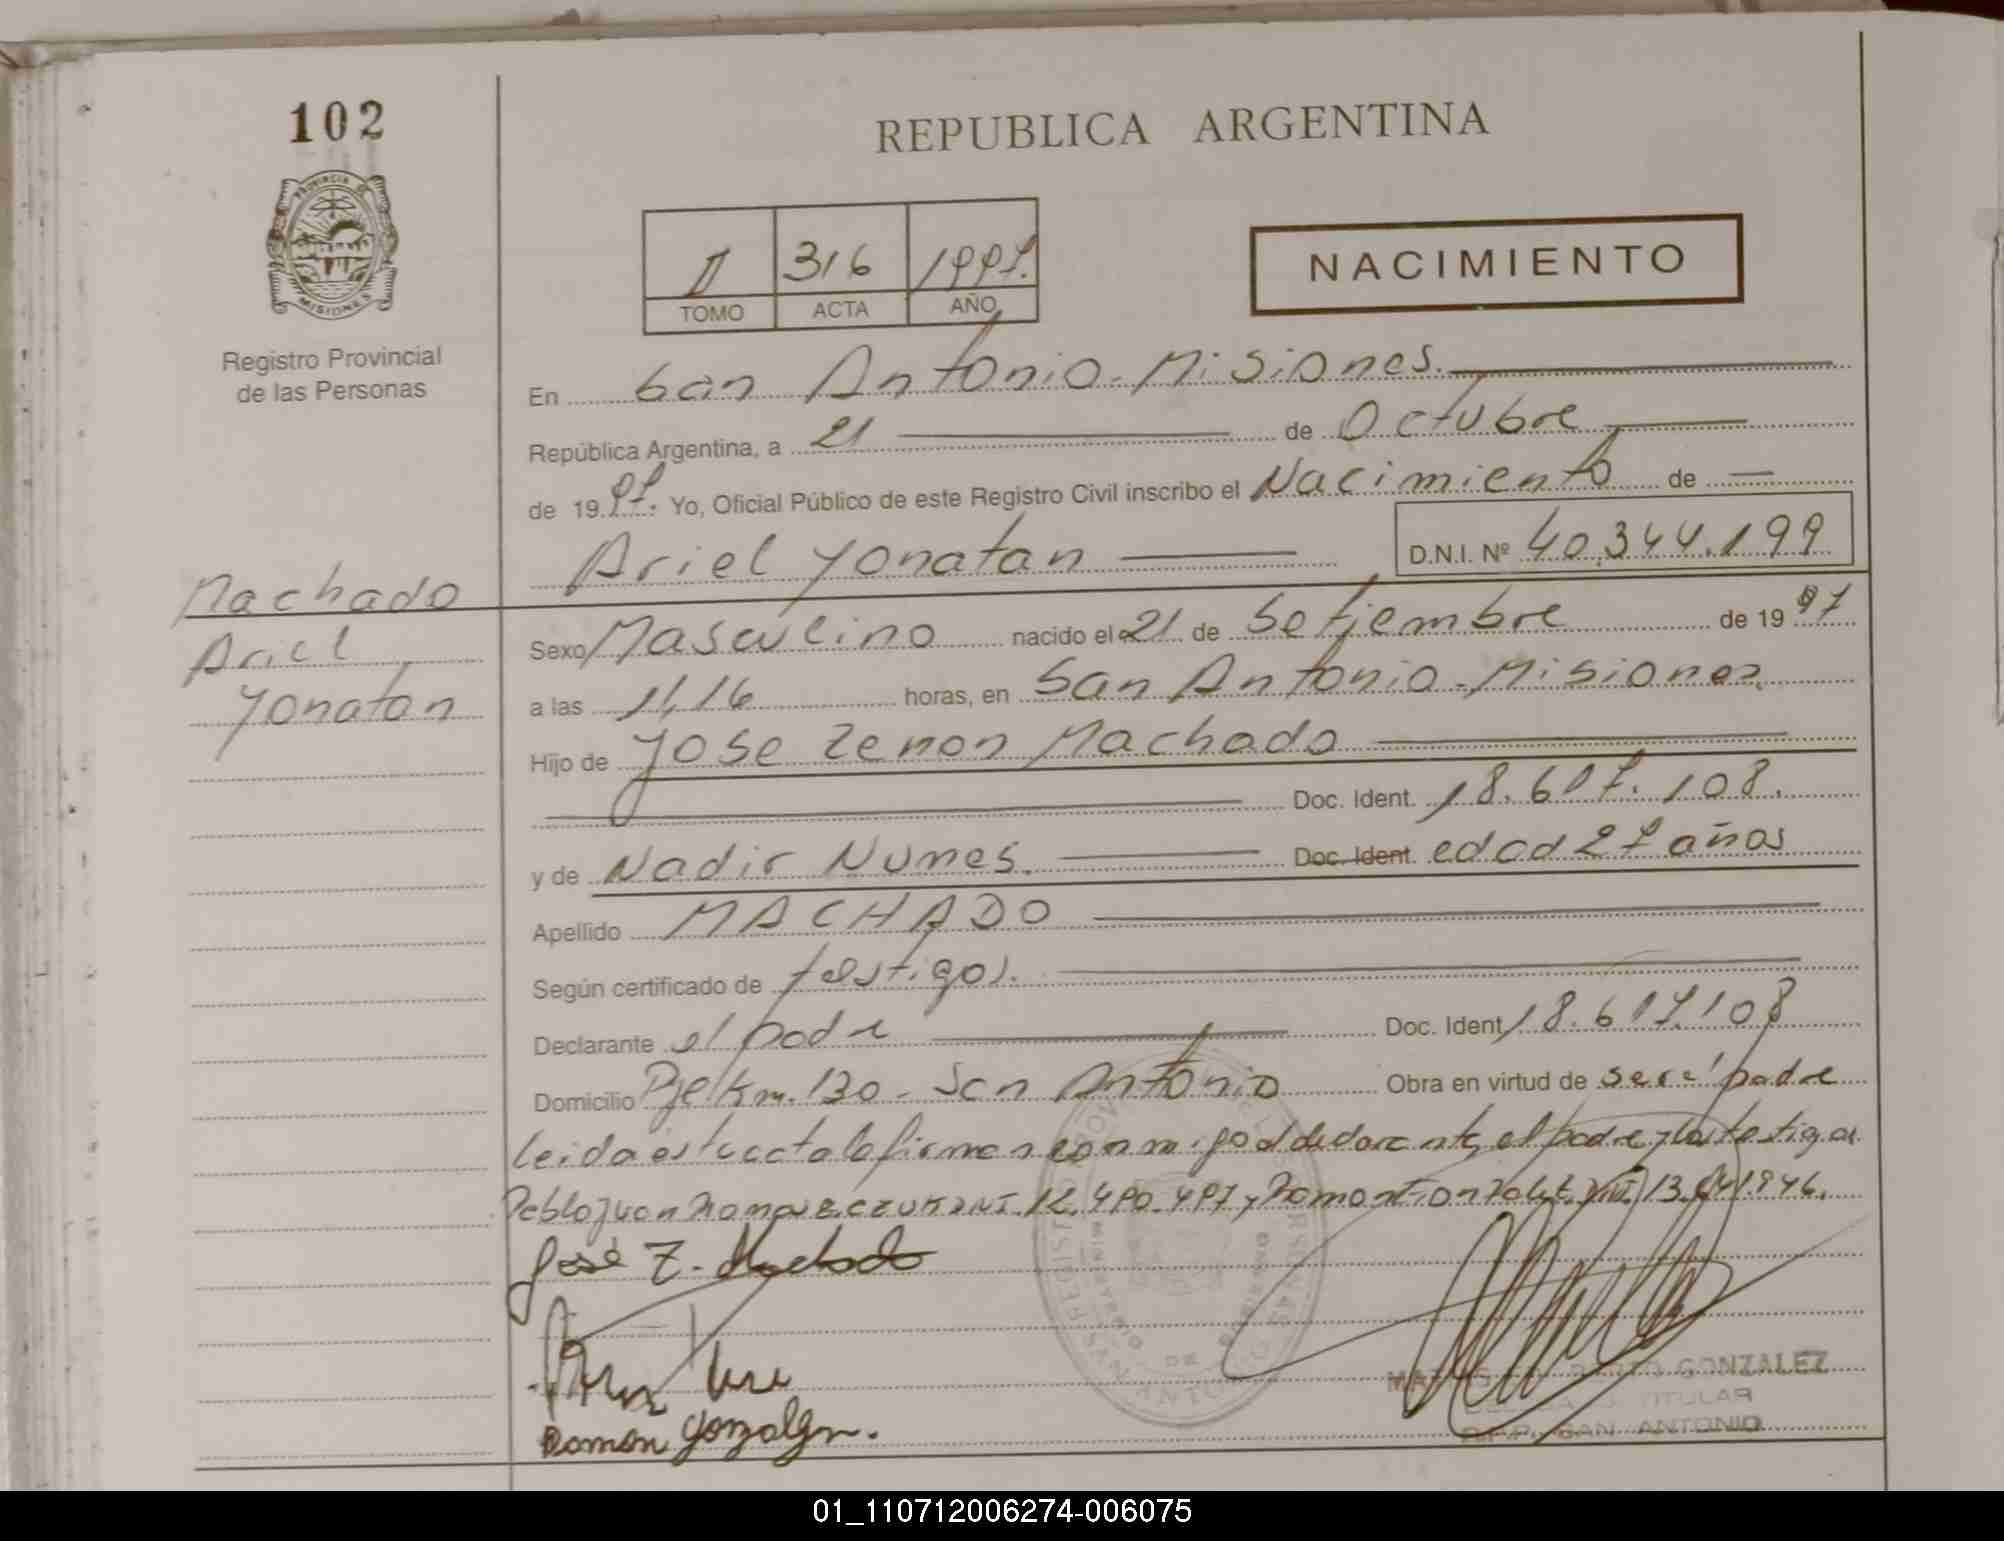 102
REPUBLICA ARGENTINA
PROVINCIA DE MISIONES
Registro Provincial
de las Personas
II 316 1997.
TOMO ACTA AÑO
NACIMIENTO
En San Antonio - Misiones.
República Argentina, a 21 de Octubre
de 1997. Yo, Oficial Público de este Registro Civil inscribo el Nacimiento de
Ariel Yonatan D.N.I. Nº 40.344.199
Machado
Ariel
Yonatan
Sexo Masculino nacido el 21 de Setiembre de 1997
a las 11,16 horas, en San Antonio - Misiones.
Hijo de Jose Zenon Machado
Doc. Ident. 18.617.108.
y de Nadir Nunes. Doc. Ident. edad 27 años
Apellido MACHADO
Según certificado de testigos.
Declarante el padre Doc. Ident. 18.617.108
Domicilio Pje Km. 130 - San Antonio Obra en virtud de ser el padre
leida esta acta la firman conmigo el declarante, el padre y los testigos
Pablo Juan 12.490.497 y Ramon
José Z. Machado
Ramón
GONZALEZ
TITULAR
SAN ANTONIO
01_110712006274-006075